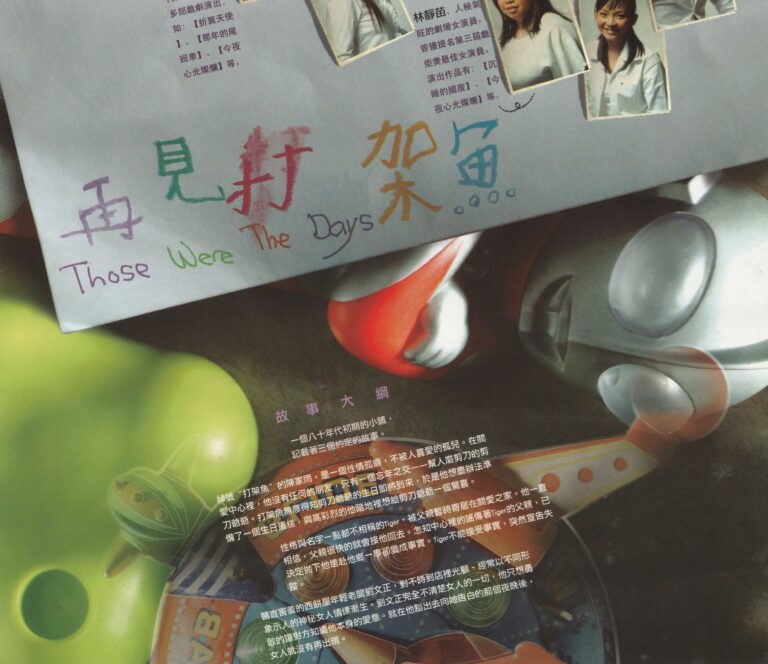 多部戲劇演出,
如:【折翼天使
】、【那年的尾
班車】、【今夜
心光燦爛】等。
林靜苗, 人極氣
旺的劇場女演員。
首獲提名第三屆戲
炬獎最佳女演員。
演出作品有:【沉
睡的國度】、【今
夜心光燦爛】等。
再見打架魚
Those Were The Days
故事大綱
一個八十年代初期的小鎮,
記載著三個約定的故事。
綽號“打架魚”的陳家雨,是一個性情孤癖,不被人喜愛的孤兒。在關
愛中心裡,他沒有任何的朋友,只有一個忘年之交——幫人磨剪刀的剪
刀爺爺。打架魚無意得知剪刀爺爺的生日即將到來,於是他想盡辦法準
備了一個生日蛋糕,興高彩烈的他暗地裡想給剪刀爺爺一個驚喜。
性格與名字一點都不相稱的Tiger,被父親暫時寄居在關愛之家。他一直
相信,父親很快的就會接他回去。怎知中心裡的謠傳著Tiger的父親,已
決定拋下他遠赴他鄉一事卻變成事實。Tiger不能接受事實,突然宣告失
蹤。
憨直害羞的西餅屋年輕老闆劉文正,對不時到店裡光顧、經常以不同形
象示人的神秘女人情愫漸生。劉文正完全不清楚女人的一切,他只想勇
敢的讓對方知道他本身的愛意。就在他豁出去向她告白的那個夜晚後,
女人就沒有再出現。